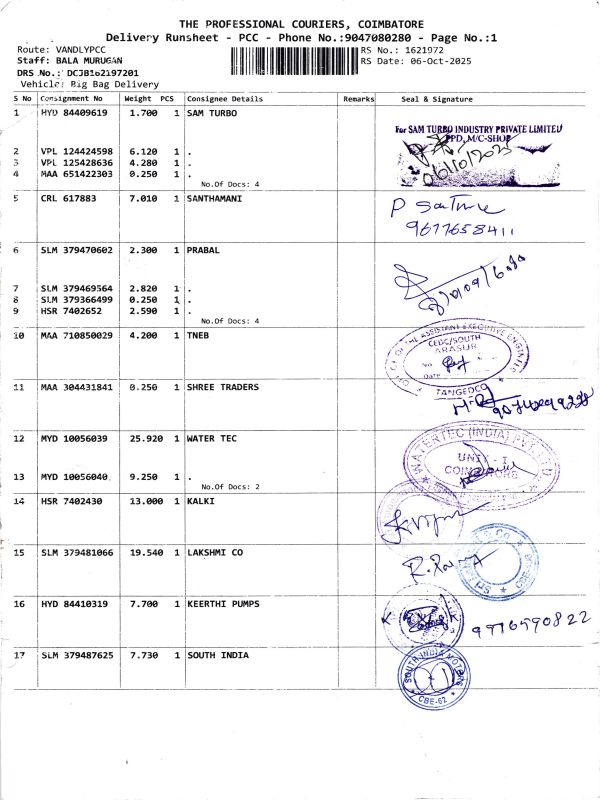 THE PROFESSIONAL COURIERS, COIMBATORE
Delivery Runsheet - PCC - Phone No.:9047080280 - Page No.:1
Route: VANDLYPCC
RS No.: 1621972
Staff: BALA MURUGAN
RS Date: 06-Oct-2025
DRS No.: DCJB162197201
Vehicle: Big Bag Delivery
S No Consignment No Weight PCS Consignee Details Remarks Seal & Signature
1 HYD 84409619 1.700 1 SAM TURBO
For SAM TURBO INDUSTRY PRIVATE LIMITED
PPD, M/C-SHOP
06/10/2025
2 VPL 124424598 6.120 1 .
3 VPL 125428636 4.280 1 .
4 MAA 651422303 0.250 1 .
No.Of Docs: 4
5 CRL 617883 7.010 1 SANTHAMANI
9677658411
6 SLM 379470602 2.300 1 PRABAL
7 SLM 379469564 2.820 1 .
8 SLM 379366499 0.250 1 .
9 HSR 7402652 2.590 1 .
No.Of Docs: 4
10 MAA 710850029 4.200 1 TNEB
OFFICE OF THE ASSISTANT EXECUTIVE ENGINEER
CEDC/SOUTH
ARASUR
No
DATE
TANGEDCO
11 MAA 304431841 0.250 1 SHREE TRADERS
12 MYD 10056039 25.920 1 WATER TEC
WATERTEC (INDIA) PVT LTD
UNIT - I
13 MYD 10056040 9.250 1 .
No.Of Docs: 2
14 HSR 7402430 13.000 1 KALKI
15 SLM 379481066 19.540 1 LAKSHMI CO
16 HYD 84410319 7.700 1 KEERTHI PUMPS
9976590822
17 SLM 379487625 7.730 1 SOUTH INDIA
SOUTH INDIA MOTORS
CBE-62